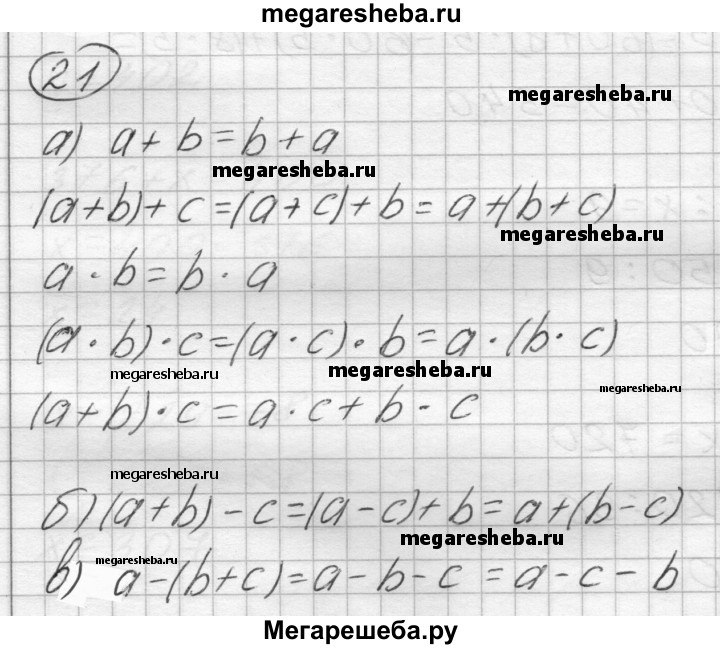 megaresheba.ru
21
megaresheba.ru
а) a + b = b + a
megaresheba.ru
(a + b) + c = (a + c) + b = a + (b + c)
megaresheba.ru
a · b = b · a
(a · b) · c = (a · c) · b = a · (b · c)
megaresheba.ru
megaresheba.ru
megaresheba.ru
(a + b) · c = a · c + b · c
megaresheba.ru
б) (a + b) - c = (a - c) + b = a + (b - c)
megaresheba.ru
megaresheba.ru
в) a - (b + c) = a - b - c = a - c - b
Мегарешеба.ру